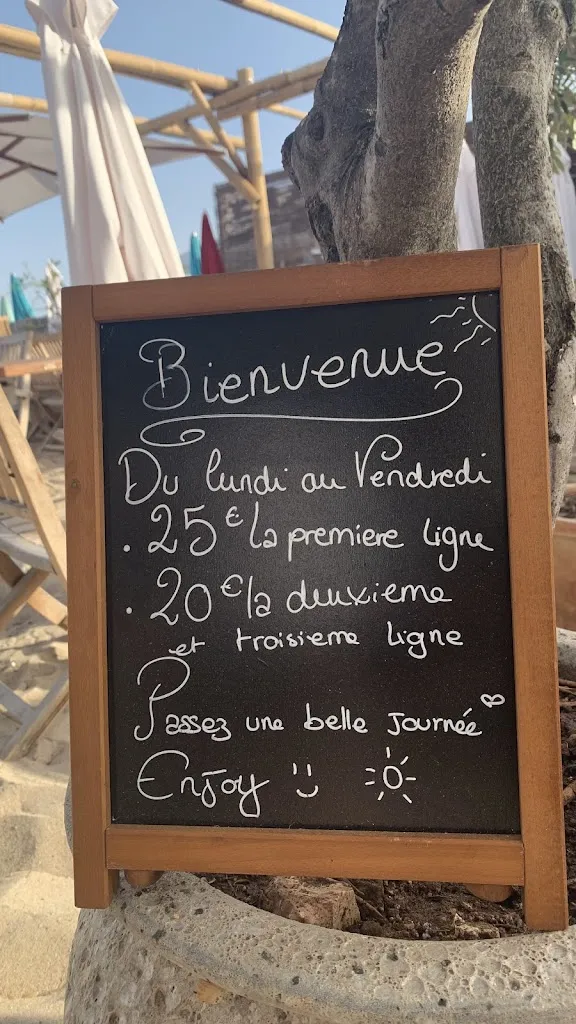 Bienvenue
Du lundi au Vendredi
. 25€ la premiere ligne
. 20€ la deuxieme
et troisieme ligne
Passez une belle Journée
Enjoy